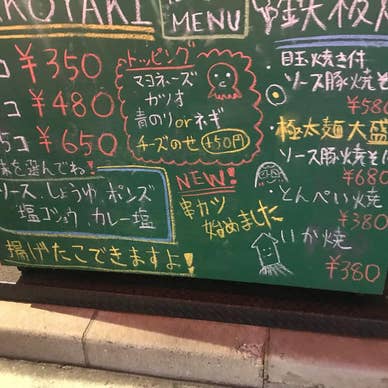 KOYAKI
コ ¥350
コ ¥480
5コ ¥650
味を選んでね!
ソース、しょうゆ、ポンズ
塩コショウ、カレー塩
揚げたこできますよ!
MENU
トッピング
マヨネーズ
カツオ
青のり or ネギ
チーズのせ +50円
NEW!
串カツ
始めました
鉄板
目玉焼き付
ソース豚焼き
¥58
極太麺大盛
ソース豚焼き
¥680
とんぺい焼
¥380
いか焼
¥380